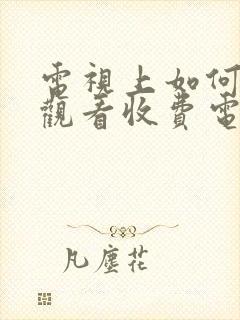 電視上如何
觀看收費電
凡塵花